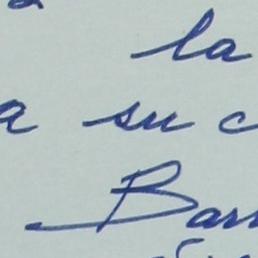 la
a su c
Barr